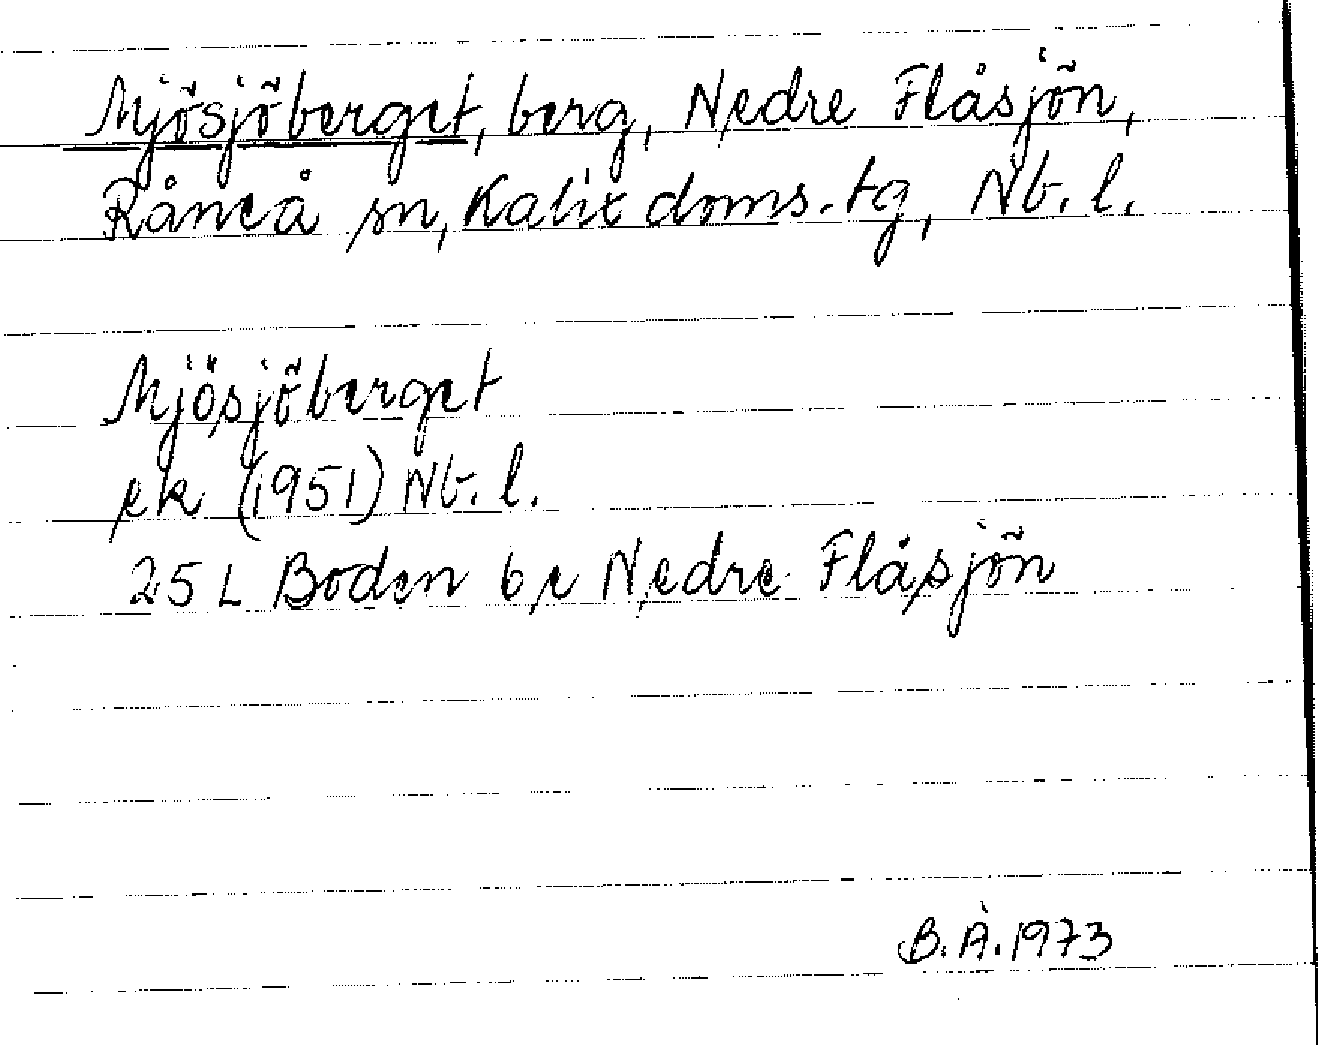 Mjösjöberget, berg, Nedre Flåsjön,
Råneå sn, Kalix doms. tg, Nb. l.
Mjösjöberget
ek (1951) Nb. l.
25 L Boden 6 e Nedre Flåsjön
B. Å. 1973